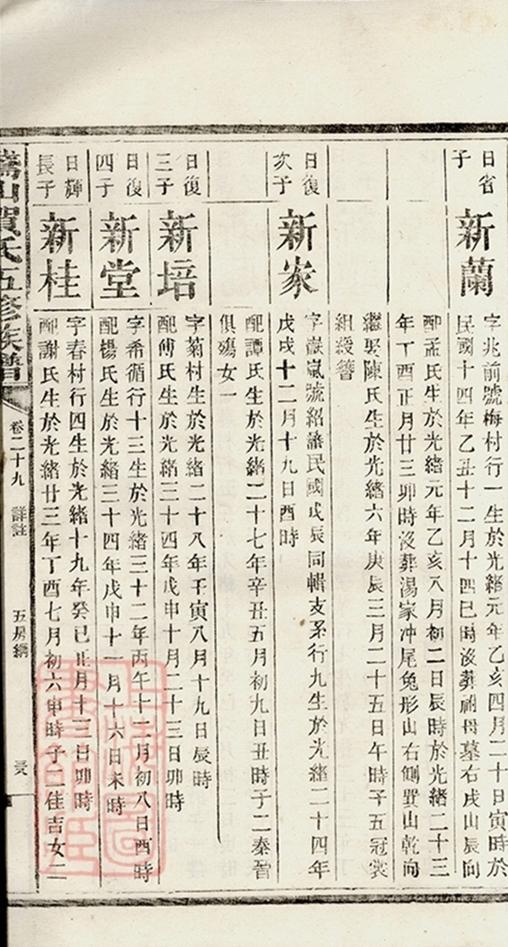 日省
子
新蘭
字兆前號梅村行一生於光緒元年乙亥四月二十日寅時於
民國十四年乙丑十二月十四巳時沒葬祖母墓右戌山辰向
配孟氏生於光緒元年乙亥八月初二日辰時於光緒二十三
年丁酉正月廿三卯時沒葬湯家冲尾兔形山右側巽山乾向
繼娶陳氏生於光緒六年庚辰三月二十五日午時子五冠裳
組綬簪
日復
次子
新家
字嶽嵐號紹謙民國戊辰同輯支系行九生於光緒二十四年
戊戌十二月十九日酉時
配譚氏生於光緒二十七年辛丑五月初九日丑時子二秦晉
俱殤女一
日復
三子
新培
字菊村生於光緒二十八年壬寅八月十九日辰時
配傅氏生於光緒三十四年戊申十月二十三日卯時
日復
四子
新堂
字希循行十三生於光緒三十二年丙午十二月初八日酉時
配楊氏生於光緒三十四年戊申十一月十六日未時
日輝
長子
新桂
字春村行四生於光緒十九年癸巳正月十三日卯時
配謝氏生於光緒廿三年丁酉七月初六申時子二佳吉女二
山賀氏五修族譜
卷二十九
詳註
五房綱